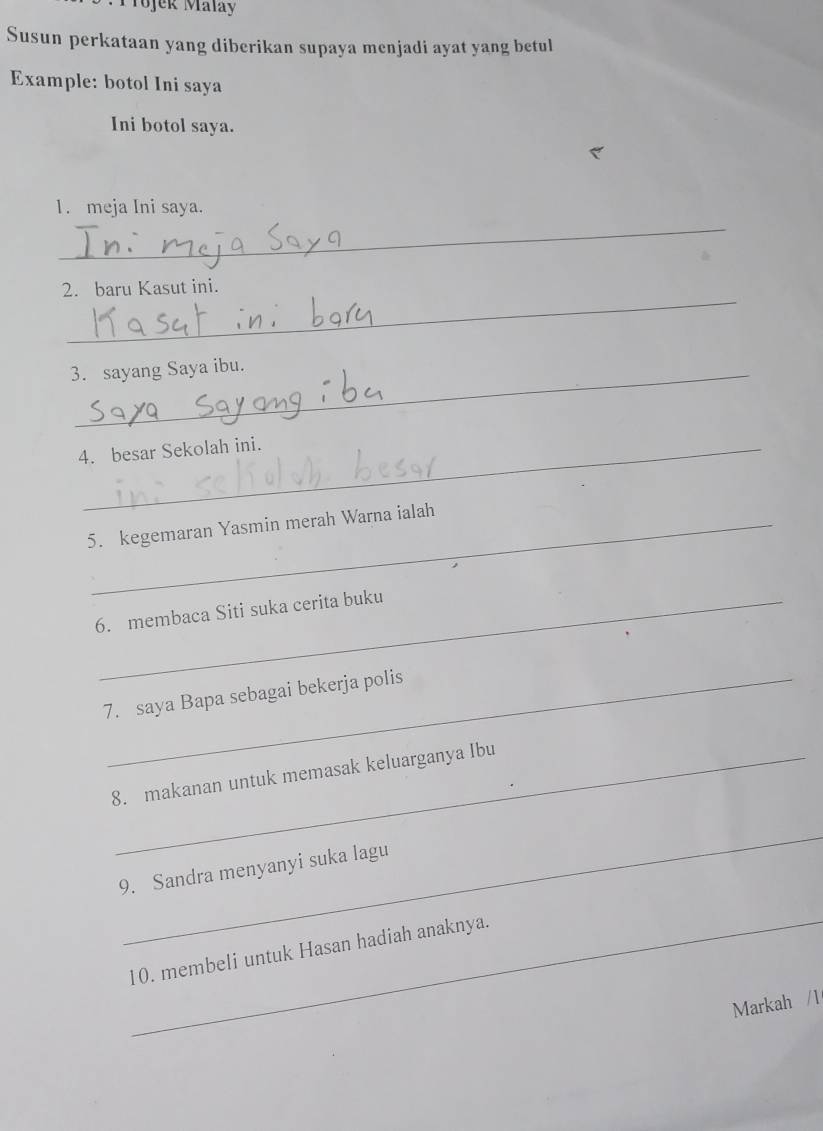 Projek Malay
Susun perkataan yang diberikan supaya menjadi ayat yang betul
Example: botol Ini saya
Ini botol saya.
1. meja Ini saya.
Ini meja Saya
2. baru Kasut ini.
Kasut ini baru
3. sayang Saya ibu.
Saya Sayang ibu
4. besar Sekolah ini.
ini sekolah besar
5. kegemaran Yasmin merah Warna ialah
6. membaca Siti suka cerita buku
7. saya Bapa sebagai bekerja polis
8. makanan untuk memasak keluarganya Ibu
9. Sandra menyanyi suka lagu
10. membeli untuk Hasan hadiah anaknya.
Markah /1